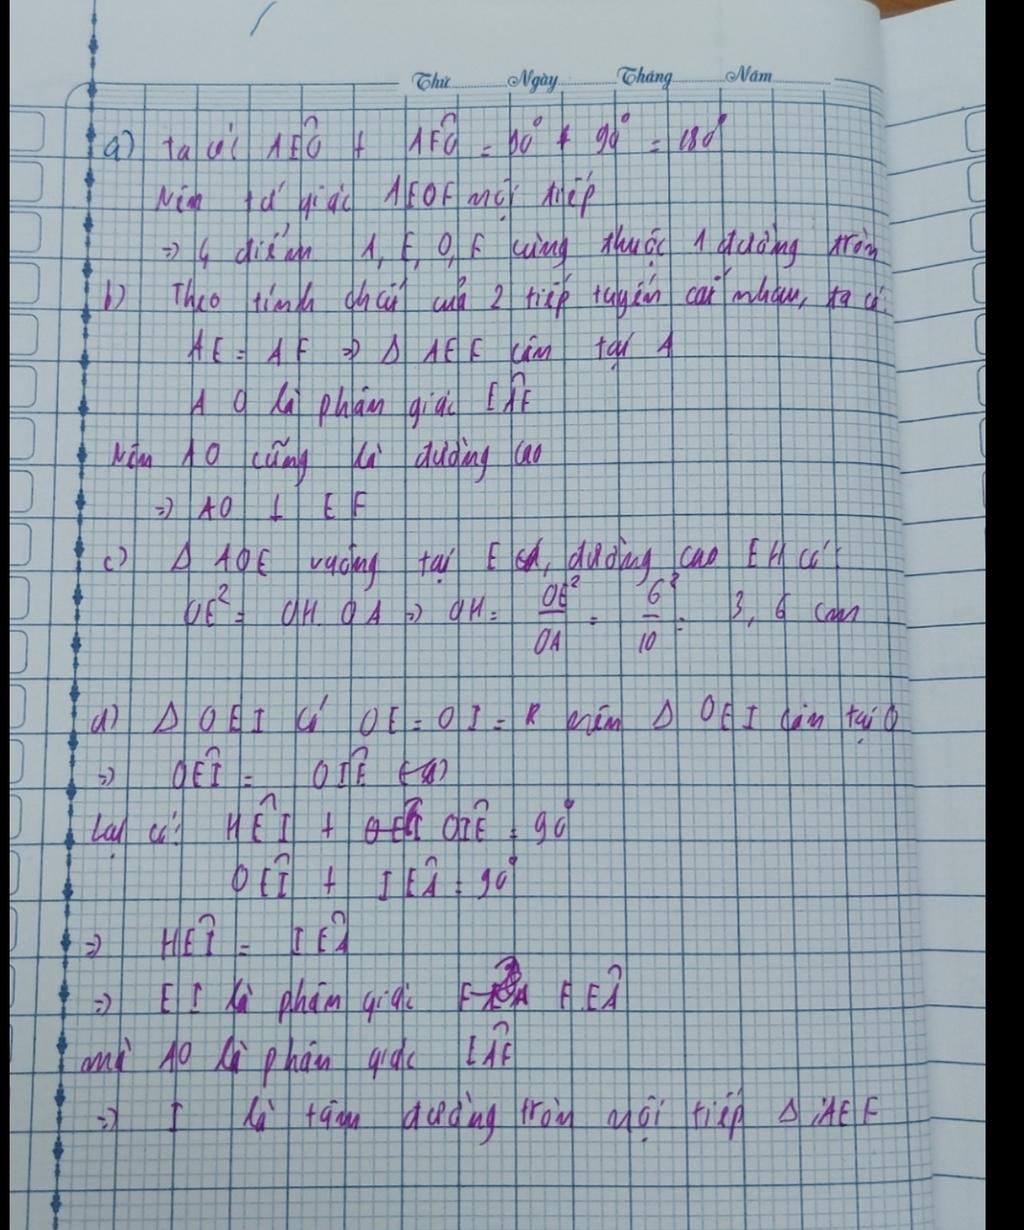 Thứ Ngày Tháng Năm
a) ta có: AÊO + AF̂O = 90° + 90° = 180°
Nên tứ giác AEOF nội tiếp
=> 4 điểm A, E, O, F cùng thuộc 1 đường tròn
b) Theo tính chất của 2 tiếp tuyến cắt nhau, ta có:
AE = AF => Δ AEF cân tại A
AO là phân giác EÂF
Nên AO cũng là đường cao
=> AO ⊥ EF
c) Δ AOE vuông tại E, đường cao EH có:
OE² = OH.OA => OH = OE²/OA = 6²/10 = 3,6 cm
d) Δ OEI có OE = OI = R nên Δ OEI cân tại O
=> OÊI = OÎE
Lại có: HÊI + OÎE = 90°
OÊI + IÊA = 90°
=> HÊI = IÊA
=> EI là phân giác FÊA
mà AO là phân giác EÂF
=> I là tâm đường tròn nội tiếp Δ AEF